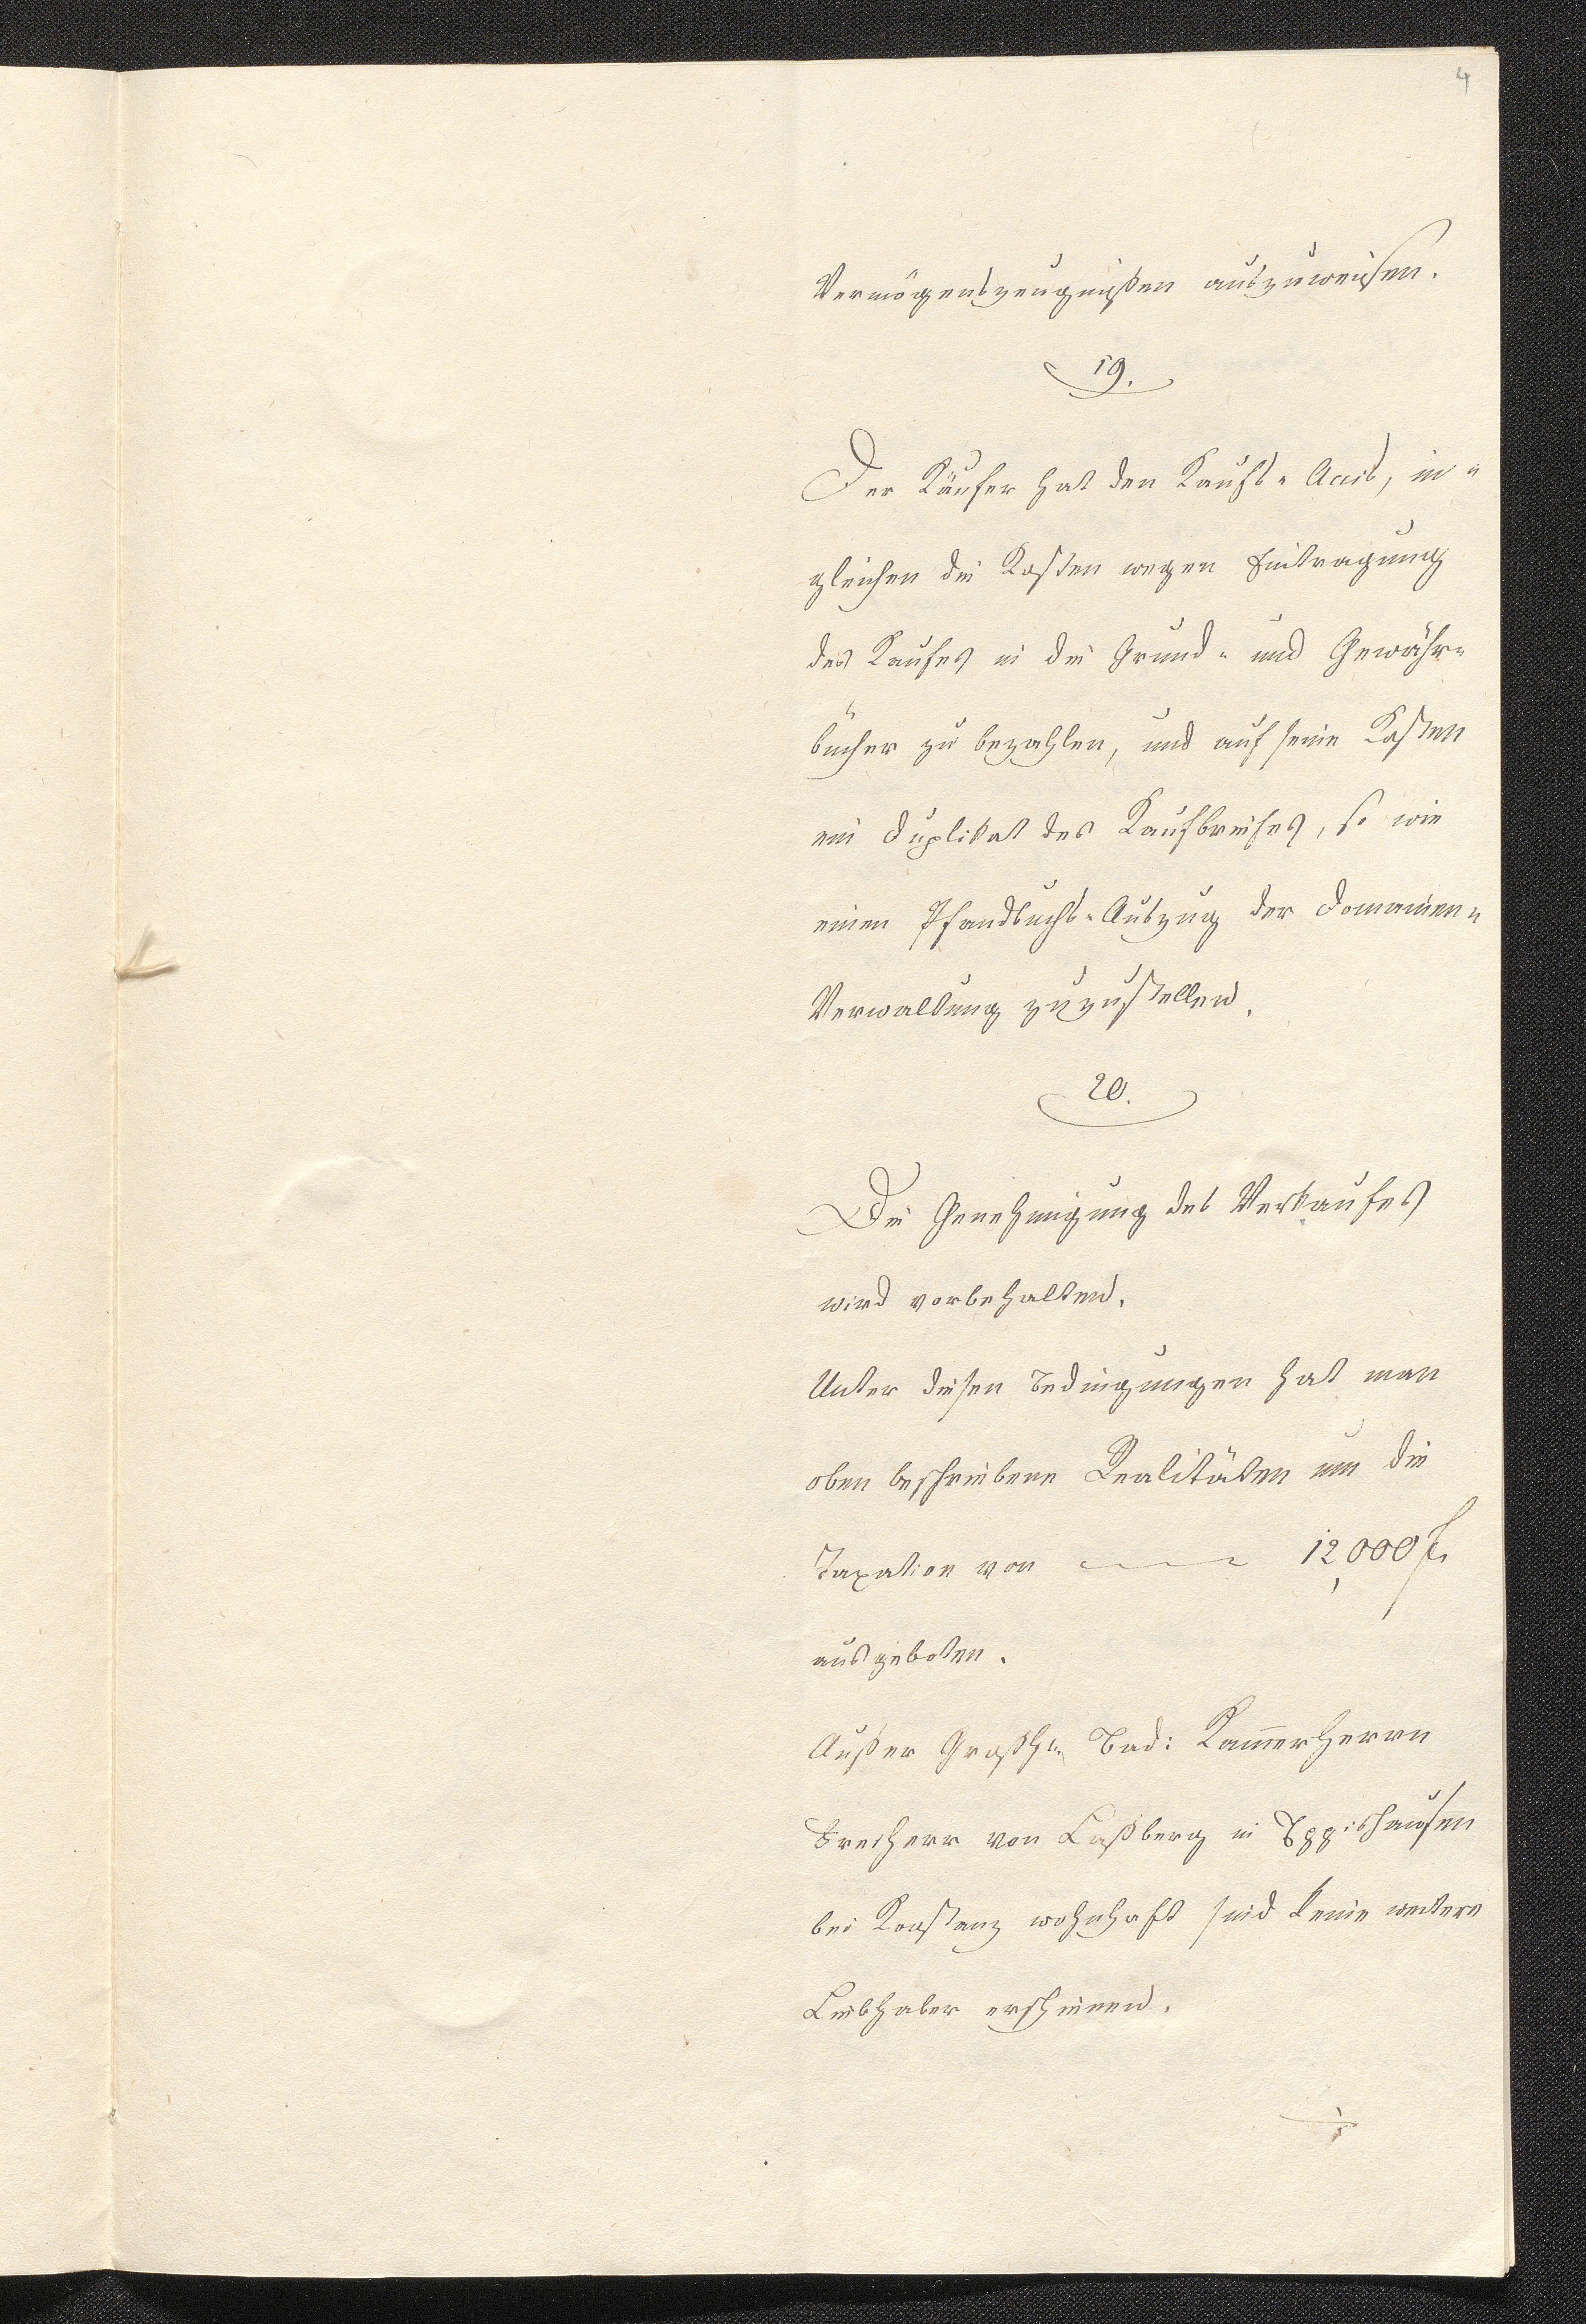 4
Vermögenszeugnißen auszuweisen.
19.
Der Käufer hat den Kaufs-Accis, in-
gleichen die Kosten wegen Eintragung
des Kaufes in die Grund- und Gewähr-
bücher zu bezahlen, und auf seine Kosten
ein Duplikat des Kaufbriefes, so wie
einen Pfandbuchs-Auszug der Domainen-
Verwaltung zuzustellen.
20.
Die Genehmigung des Verkaufes
wird vorbehalten.
Unter diesen Bedingungen hat man
oben beschriebene Realitäten um die
Taxation von 12,000 f.
ausgeboten.
Außer Großh. Bad: Kammerherrn
Freiherr von Laßberg in Eppishausen
bei Konstanz wohnhaft sind keine weitere
Liebhaber erschienen.